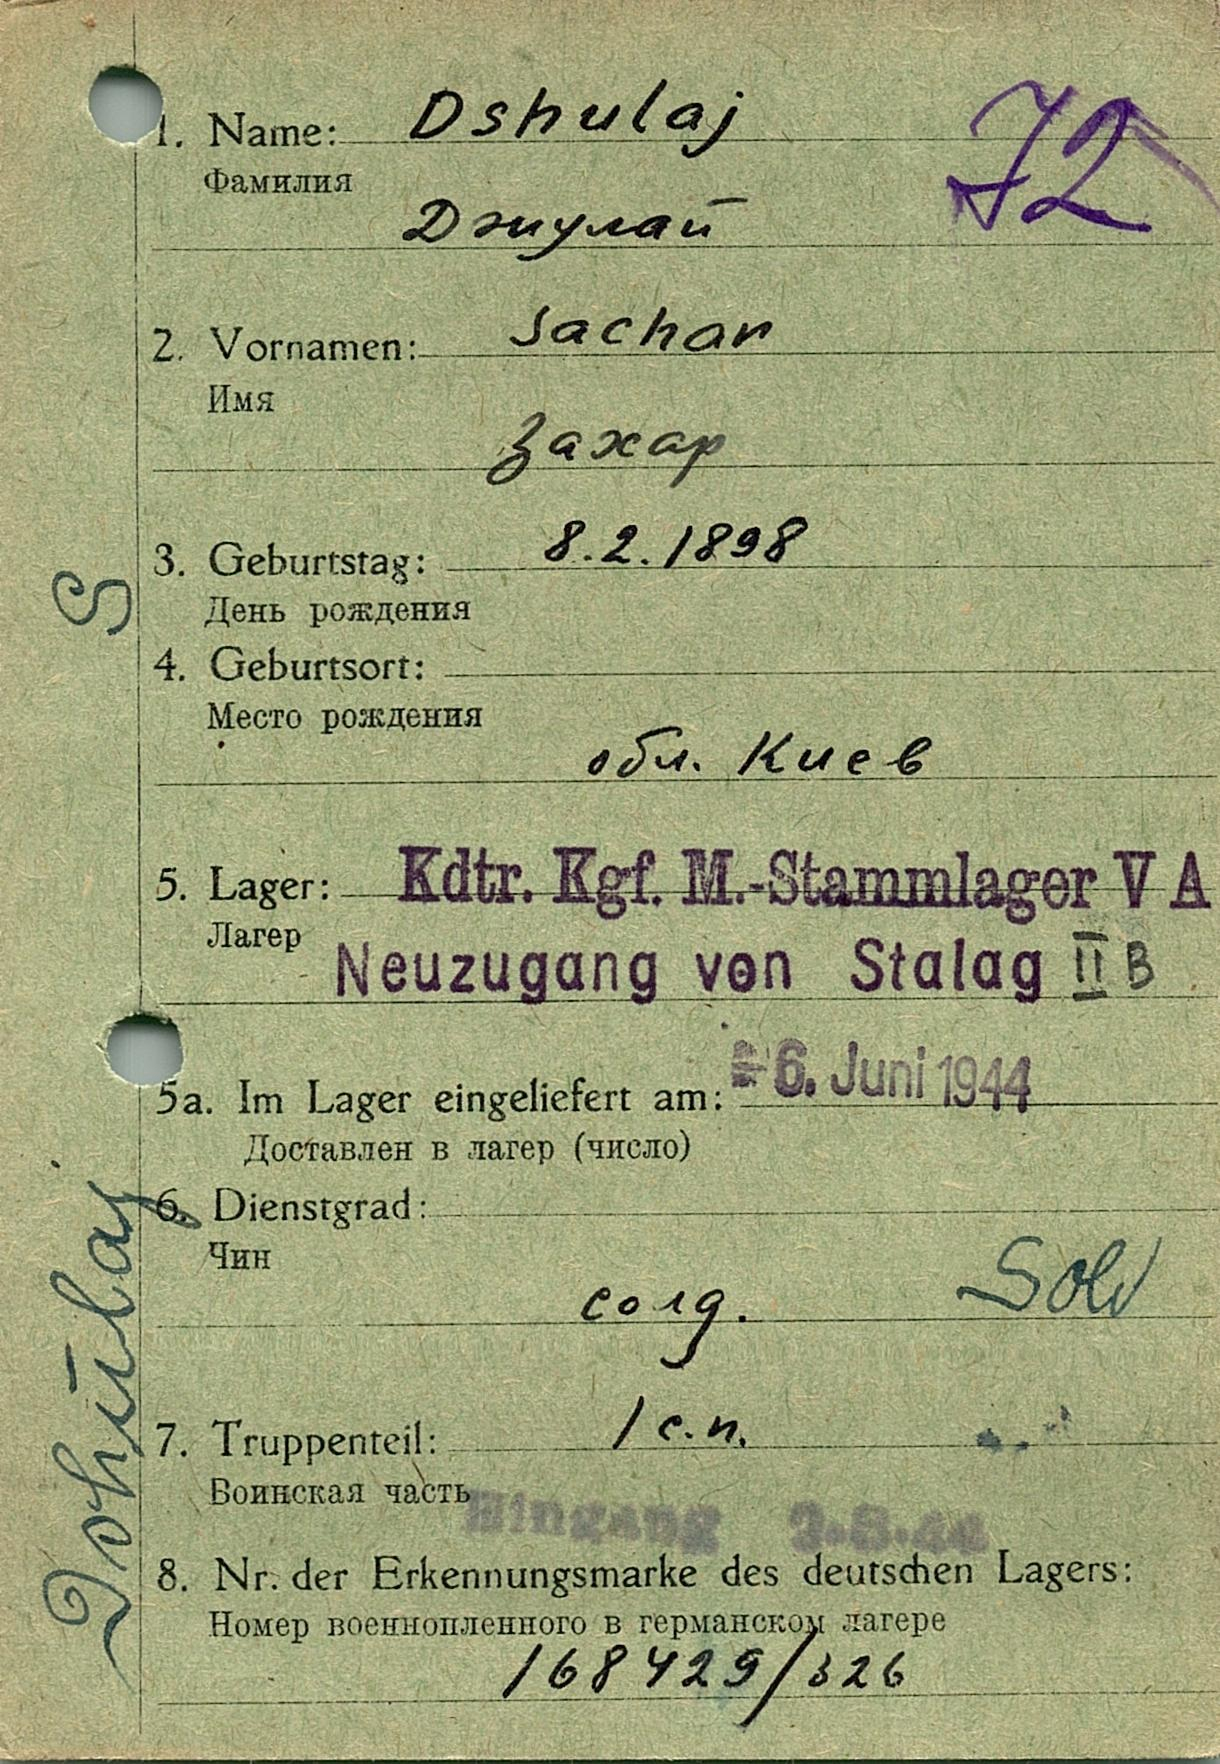 1. Name: Dshulaj
72
Фамилия
Джулай
2. Vornamen: Sachar
Имя
Захар
3. Geburtstag: 8.2.1898
День рождения
S
4. Geburtsort:
Место рождения
обл. Киев
5. Lager: Kdtr. Kgf. M.-Stammlager V A
Лагер
Neuzugang von Stalag II B
5a. Im Lager eingeliefert am: 6. Juni 1944
Доставлен в лагер (число)
6. Dienstgrad:
Чин
солд. Sold
7. Truppenteil: 1 с.п.
Воинская часть
Eingang
8. Nr. der Erkennungsmarke des deutschen Lagers:
Номер военнопленного в германском лагере
168429/326